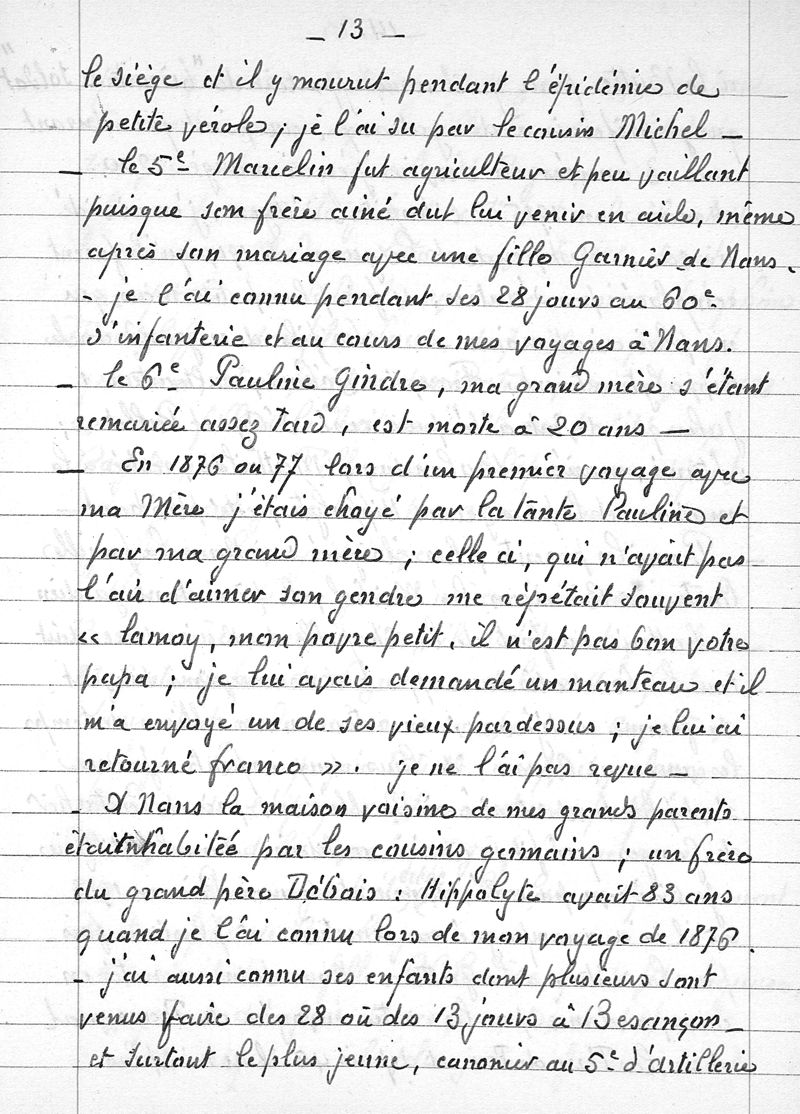 — 13 —
le siège et il y mourut pendant l'épidémie de
petite vérole ; je l'ai su par le cousin Michel —
— le 5e Marcelin fut agriculteur et peu vaillant
puisque son frère ainé dut lui venir en aide, même
après son mariage avec une fille Garnier de Nans.
- je l'ai connu pendant ses 28 jours au 60e
d'infanterie et au cours de mes voyages à Nans.
— le 6e Pauline Gindre, ma grand mère s'étant
remariée assez tard, est morte à 20 ans —
— En 1876 ou 77 lors d'un premier voyage avec
ma Mère j'étais choyé par la tante Pauline et
par ma grand mère ; celle ci, qui n'avait pas
l'air d'aimer son gendre me répétait souvent
« lamoy, mon povre petit, il n'est pas bon votre
papa ; je lui avais demandé un manteau et il
m'a envoyé un de ses vieux pardessus ; je lui ai
retourné franco ». je ne l'ai pas revue —
- A Nans la maison voisine de mes grands parents
était inhabitée par les cousins germains ; un frère
du grand père Débois : Hippolyte avait 83 ans
quand je l'ai connu lors de mon voyage de 1876.
- j'ai aussi connu ses enfants dont plusieurs sont
venus faire des 28 où des 13 jours à Besançon —
et surtout le plus jeune, canonier au 5e d'artillerie